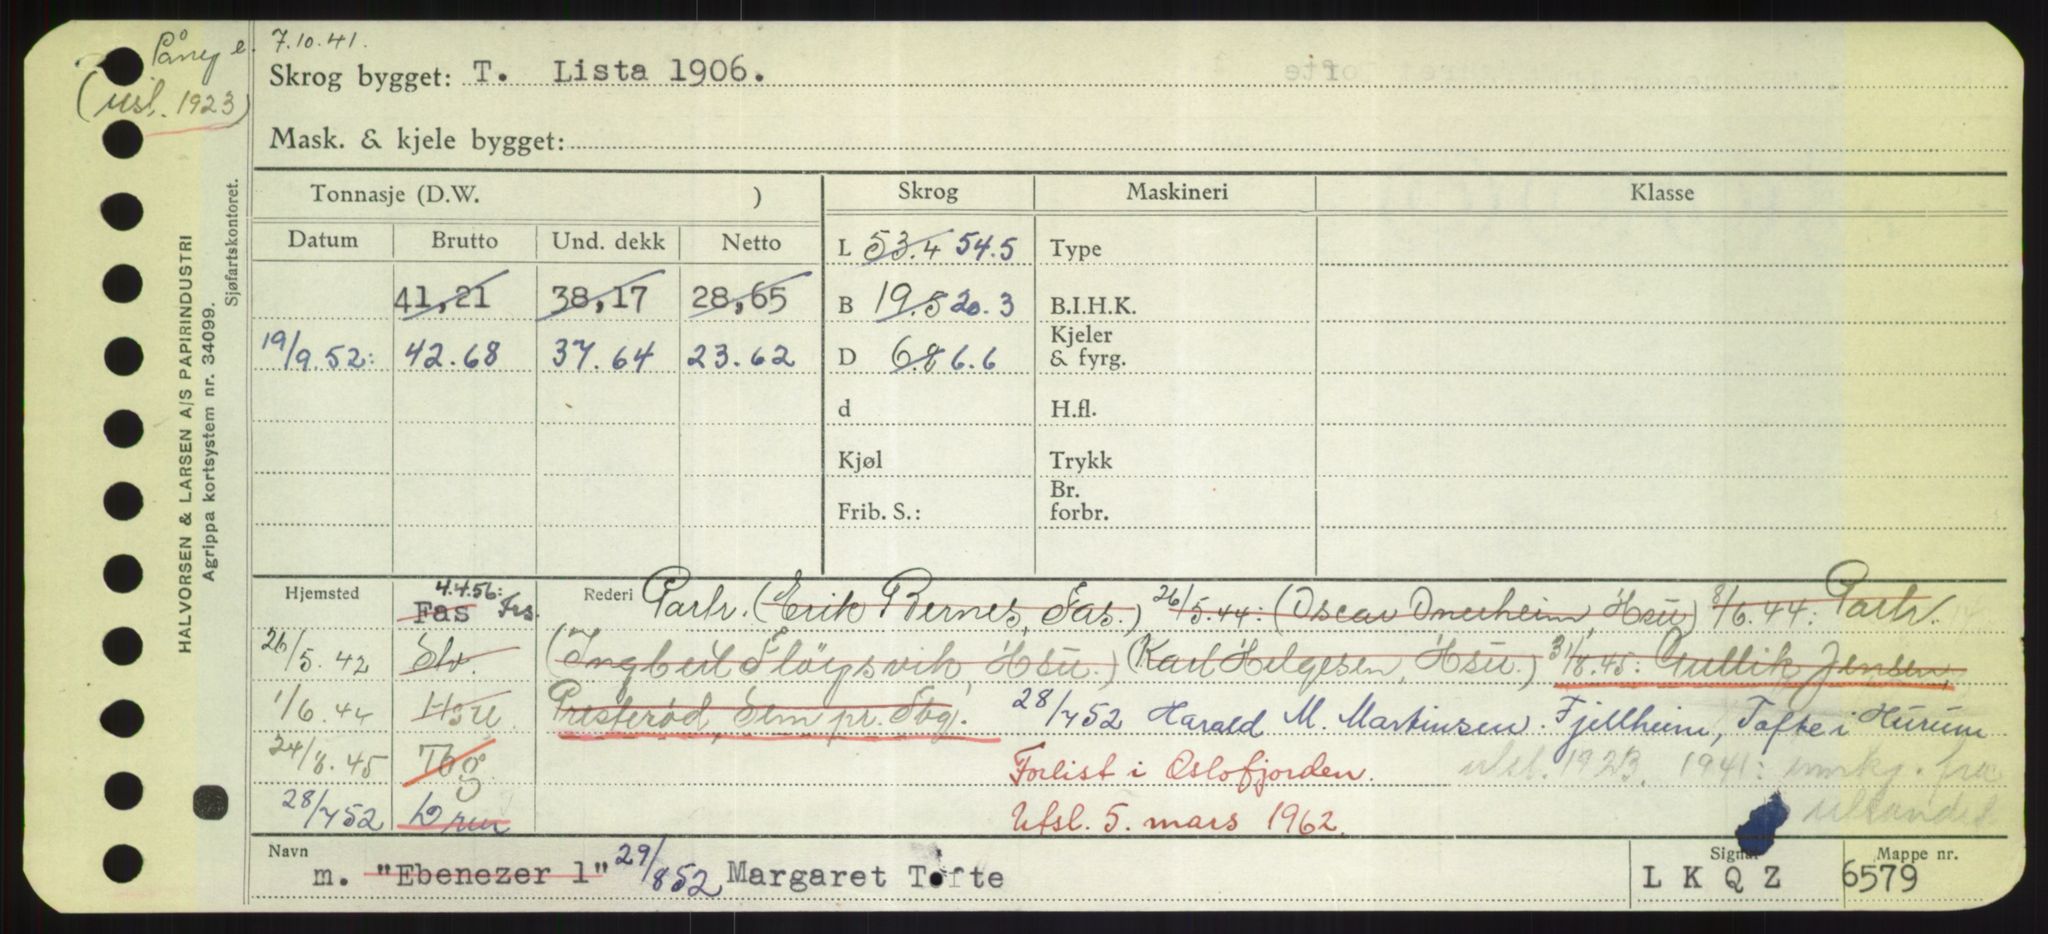 På ny e. 7.10.41.
(utsl. 1923)
Skrog bygget: T. Lista 1906.
Mask. & kjele bygget:
HALVORSEN & LARSEN A/S PAPIRINDUSTRI
Agrippa kortsystem nr. 34099.
Sjøfartskontoret.
Tonnasje (D.W. ) Skrog Maskineri Klasse
Datum Brutto Und. dekk Netto L 53.4 54.5 Type
41,21 38,17 28,65 B 19.8 20.3 B.I.H.K.
19/9.52: 42.68 37.64 23.62 D 6.8 6.6 Kjeler & fyrg.
d H.fl.
Kjøl Trykk
Frib. S.: Br. forbr.
Hjemsted Fas 4.4.56: Frs. Rederi Partr. (Erik Bernes, Fas.) 26/5.44: (Oscar Omerheim, Hsu) 8/6.44: Partr.
26/5.42 Slv. (Ingbert Fløysvik, Hsu.) (Karl Helgesen, Hsu.) 31/8.45: Gullik Jensen,
1/6.44 Hsu. Presterød, Sem pr. Tbg. 28/7 52 Harald M. Martinsen. Fjellheim, Tofte i Hurum
24/8.45 Tbg Forlist i Oslofjorden. utsl. 1923. 1941: innkj. fra
28/7 52 Drm Utsl. 5. mars 1962. utlandet
Navn m. "Ebenezer 1" 29/8 52 Margaret Tofte Signal L K Q Z Mappe nr. 6579